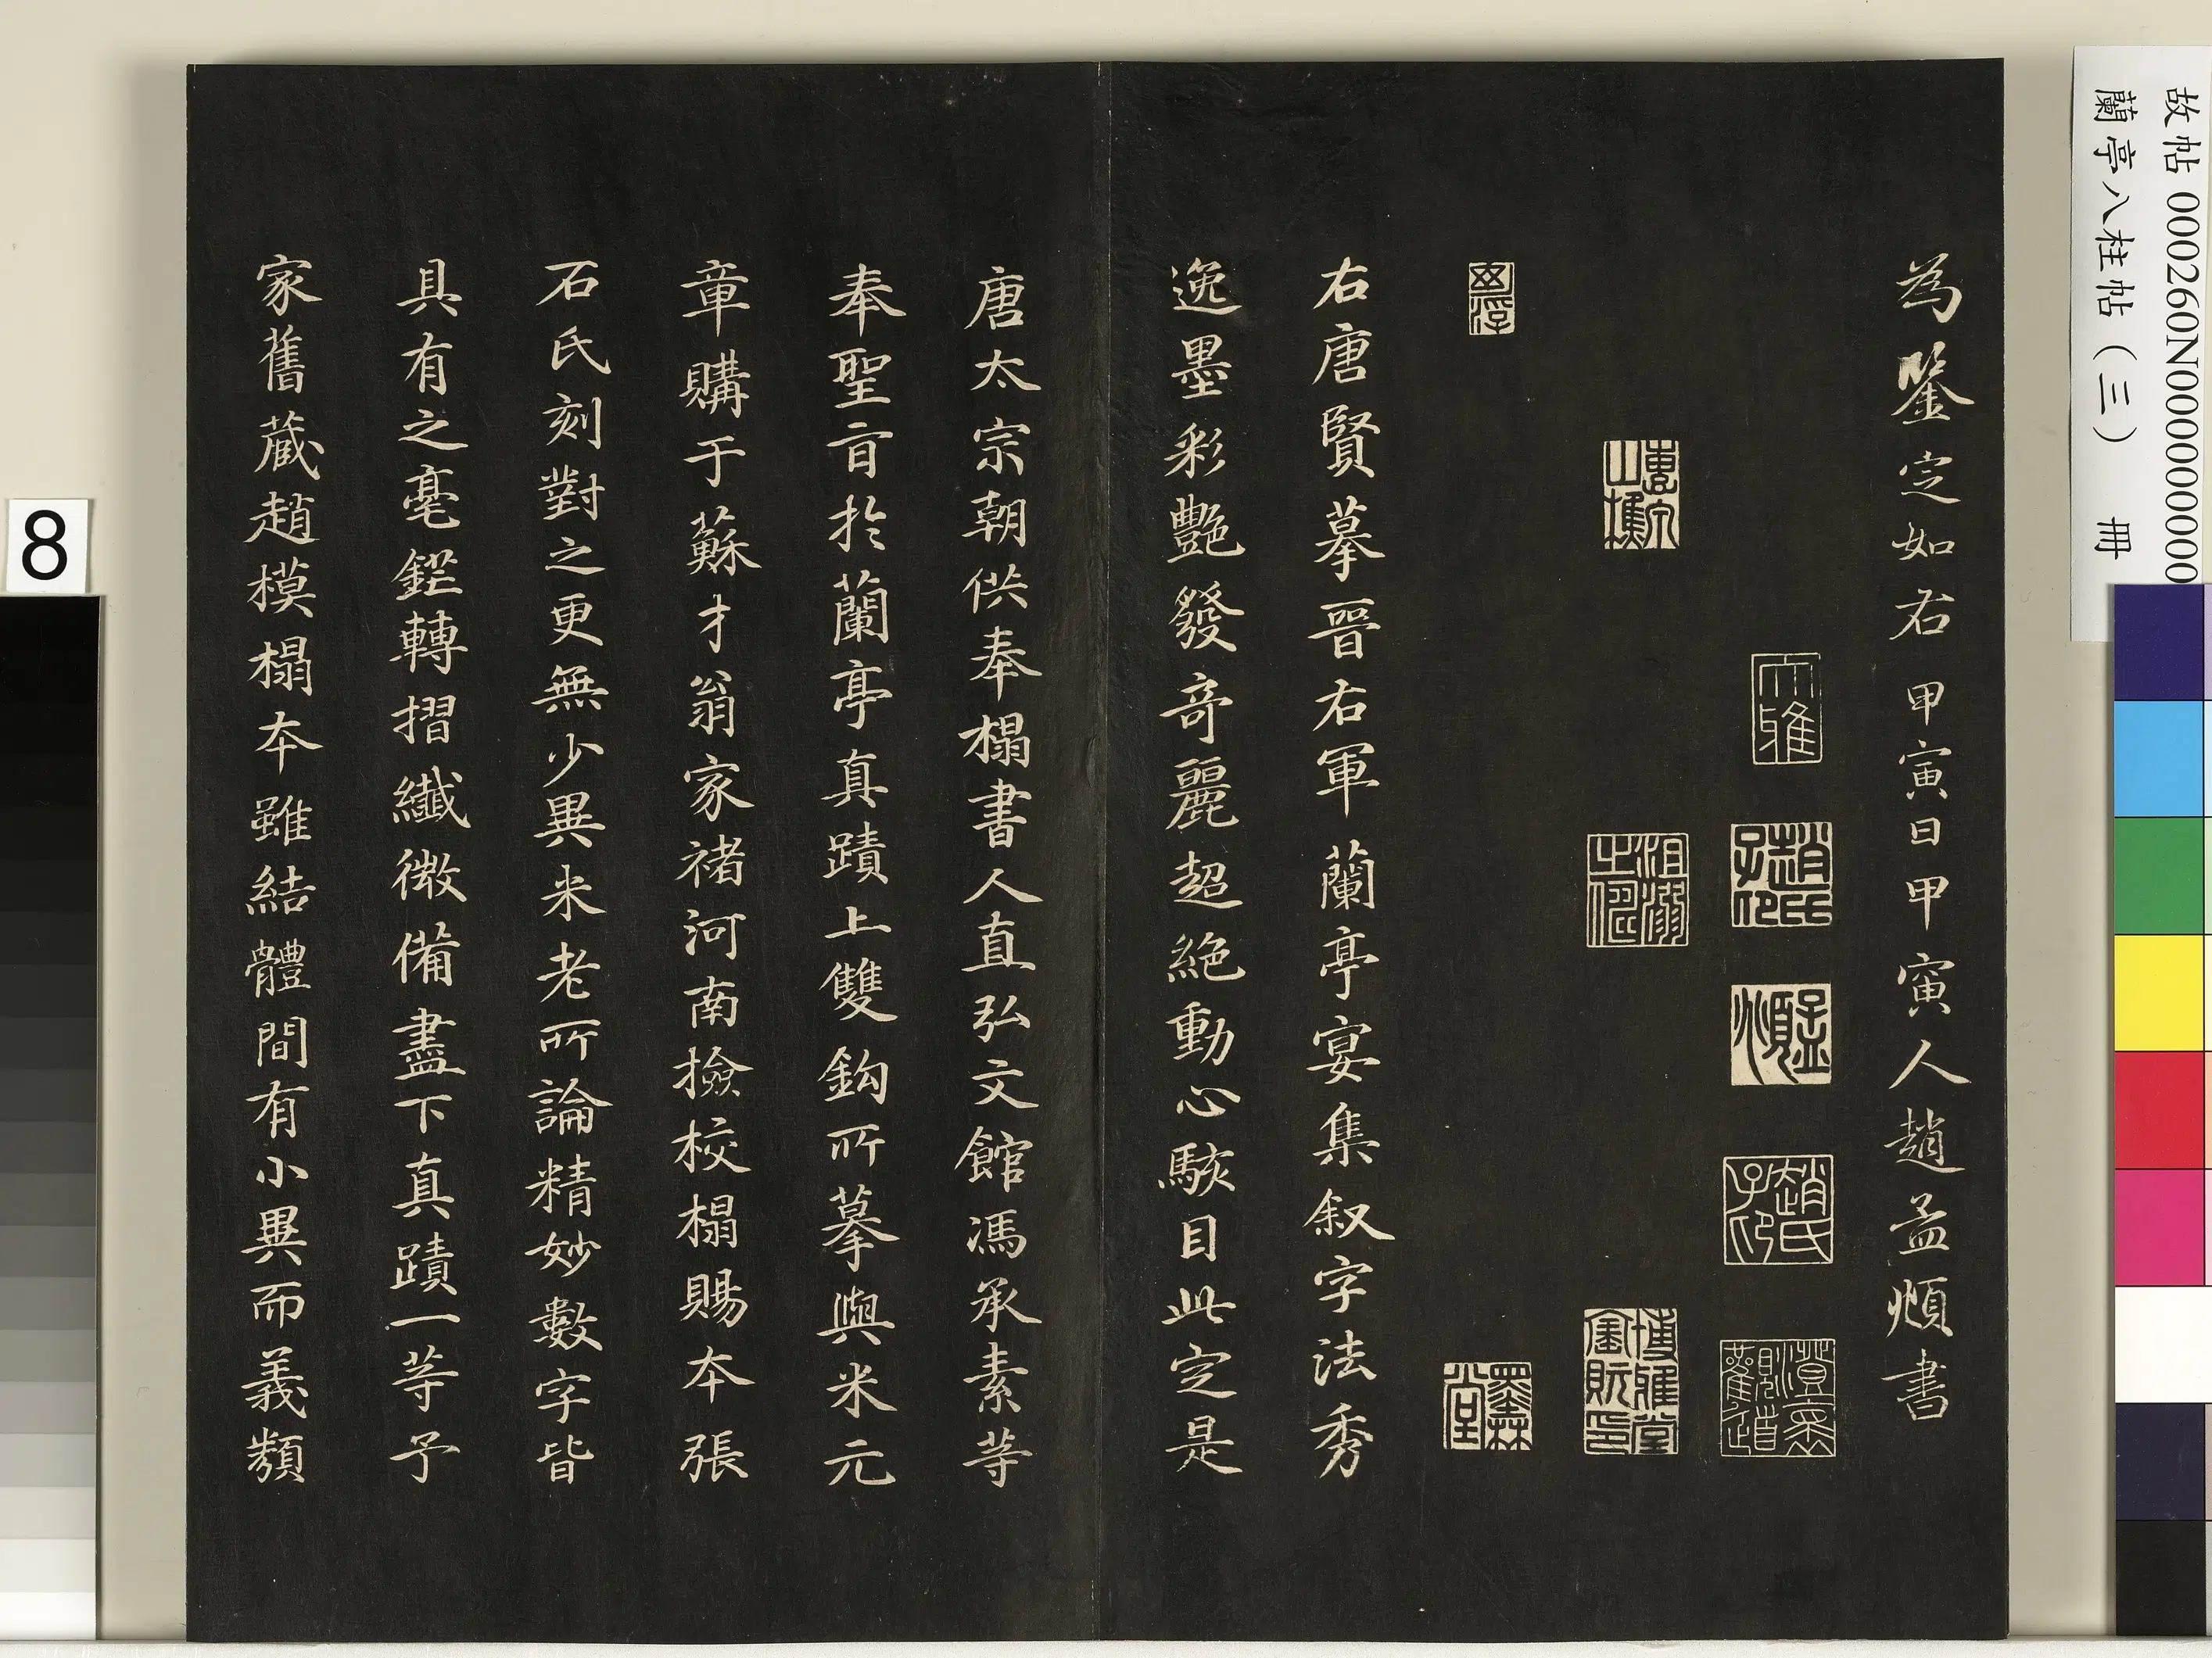 故帖 000260N000000000
蘭亭八柱帖（三） 冊
為鑒定如右甲寅日甲寅人趙孟頫書
大雅
趙氏子印
孟頫
趙氏子印
沮溺之偶
博雅堂寶玩印
墨林堂
右唐賢摹晉右軍蘭亭宴集叙字法秀
逸墨彩艷發奇麗超絶動心駭目此定是
唐太宗朝供奉榻書人直弘文館馮承素等
奉聖旨於蘭亭真蹟上雙鈎所摹與米元
章購于蘇才翁家褚河南撿校榻賜本張
石氏刻對之更無少異米老所論精妙數字皆
具有之毫鋩轉摺纖微備盡下真蹟一等予
家舊藏趙模榻本雖結體間有小異而義類
8